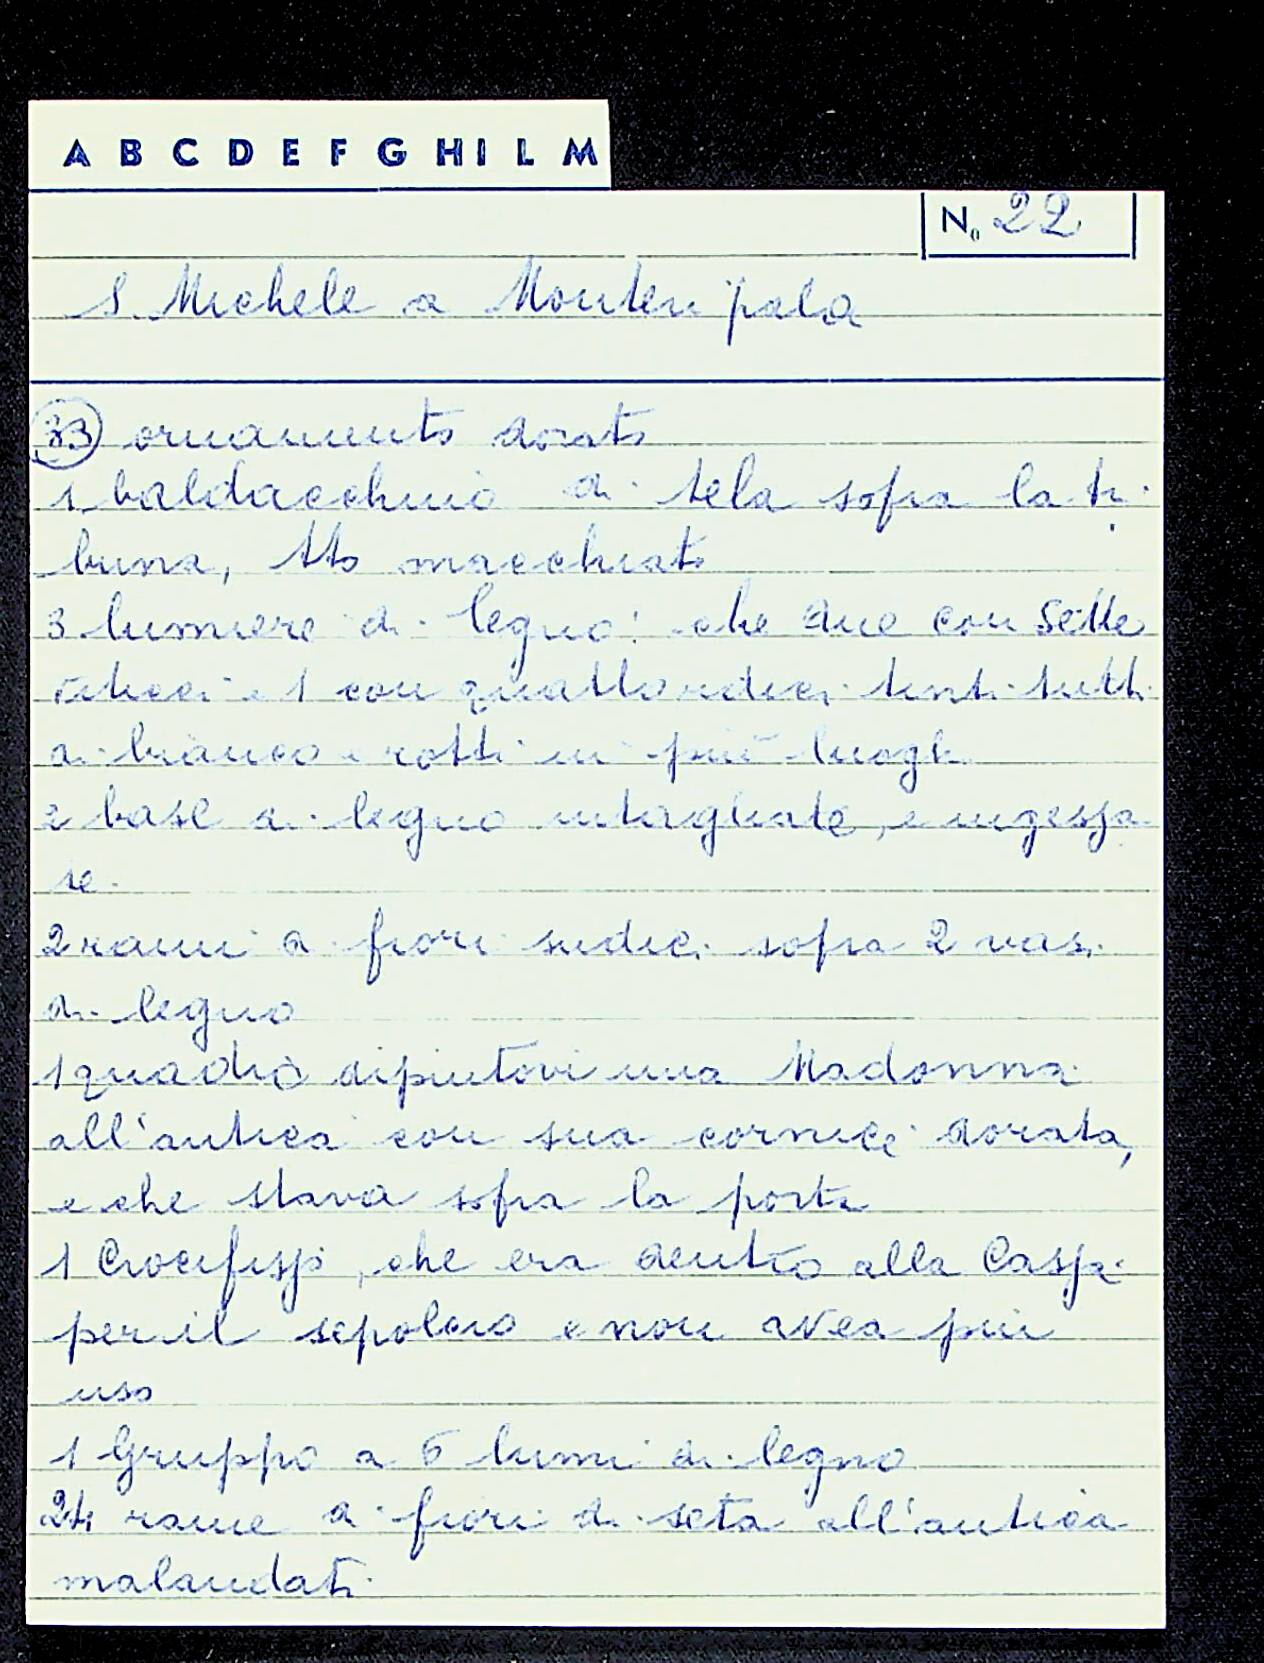 A B C D E F G H I L M
No 22
S. Michele a Monteripaldi
33 ornamento dorato
1 baldacchino di tela sopra la tri
buna, tto macchiato
3 lumiere di legno: che due con sette
viticci e 1 con quattordici tinti tutti
di bianco e rotti in più luoghi
2 base di legno intagliate, e ingessa
te.
2 rami di fiori sudici sopra 2 vasi
di legno
1 quadro dipintovi una Madonna
all'antica con sua cornice dorata,
e che stava sopra la porta
1 Crocifisso, che era dentro alla Cassa
per il sepolcro e non avea più
uso
1 Gruppo a 6 lumi di legno
24 rame di fiori di seta all'antica
malandati